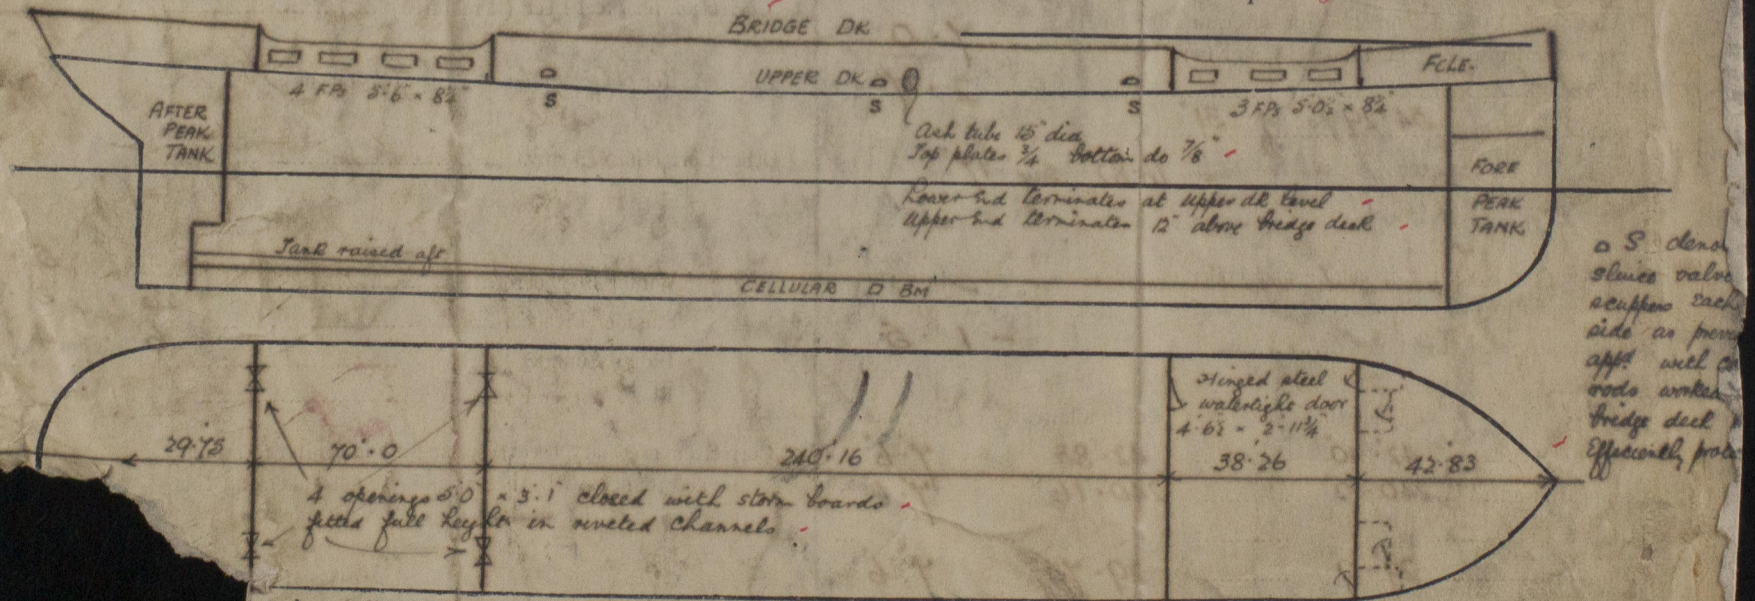 BRIDGE DK
UPPER DK
FCLE.
4 FPs 5'·6" × 8¼"
S
S
S
3 FPs 5·0½ × 8¼"
AFTER
PEAK
TANK
Ash tube 15" dia
Top plates ¾" bottom do ⅞"
FORE
PEAK
TANK
Lower End terminates at upper dk level
Upper End terminates 12" above bridge deck
Tank raised aft
CELLULAR D BM
S
sluice
scuppers Each
side as
appd with
rods worked
bridge deck
Efficiently
Hinged steel
watertight door
4·6½ × 2·11¾
29·75
70·0
240·16
38·26
42·83
4 openings 5·0" × 3·1" closed with storm boards
fitted full height in riveted channels